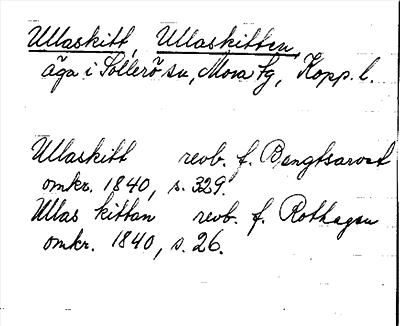 Ullaskitt, Ullaskitten,
äga i Sollerö sn, Mora fg, Kopp. l.
Ullaskitt revb. f. Bengtsarvet
omkr. 1840, s. 329.
Ullas kittan revb. f. Rothagen
omkr. 1840, s. 26.